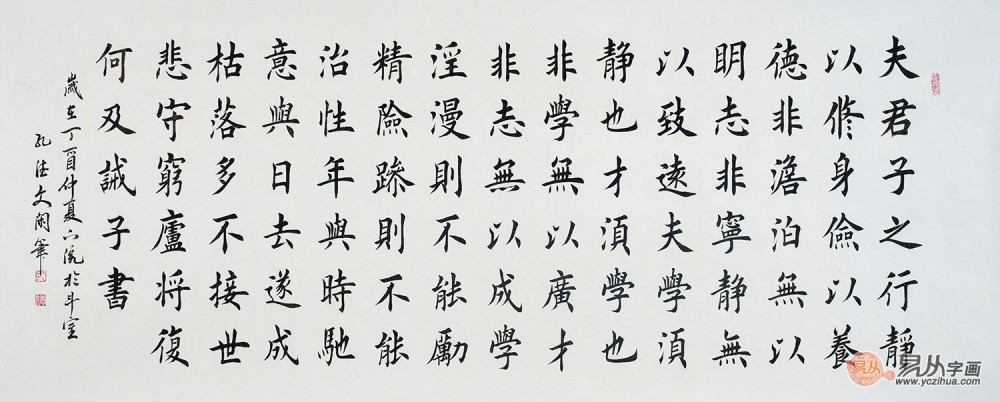 夫君子之行靜
以修身儉以養
德非澹泊無以
明志非寧靜無
以致遠夫學須
靜也才須學也
非學無以廣才
非志無以成學
淫漫則不能勵
精險躁則不能
治性年與時馳
意與日去遂成
枯落多不接世
悲守窮廬將復
何及誡子書
歲在丁酉仲夏下浣於斗室
孔德文開筆
易从字画
www.yczihua.com